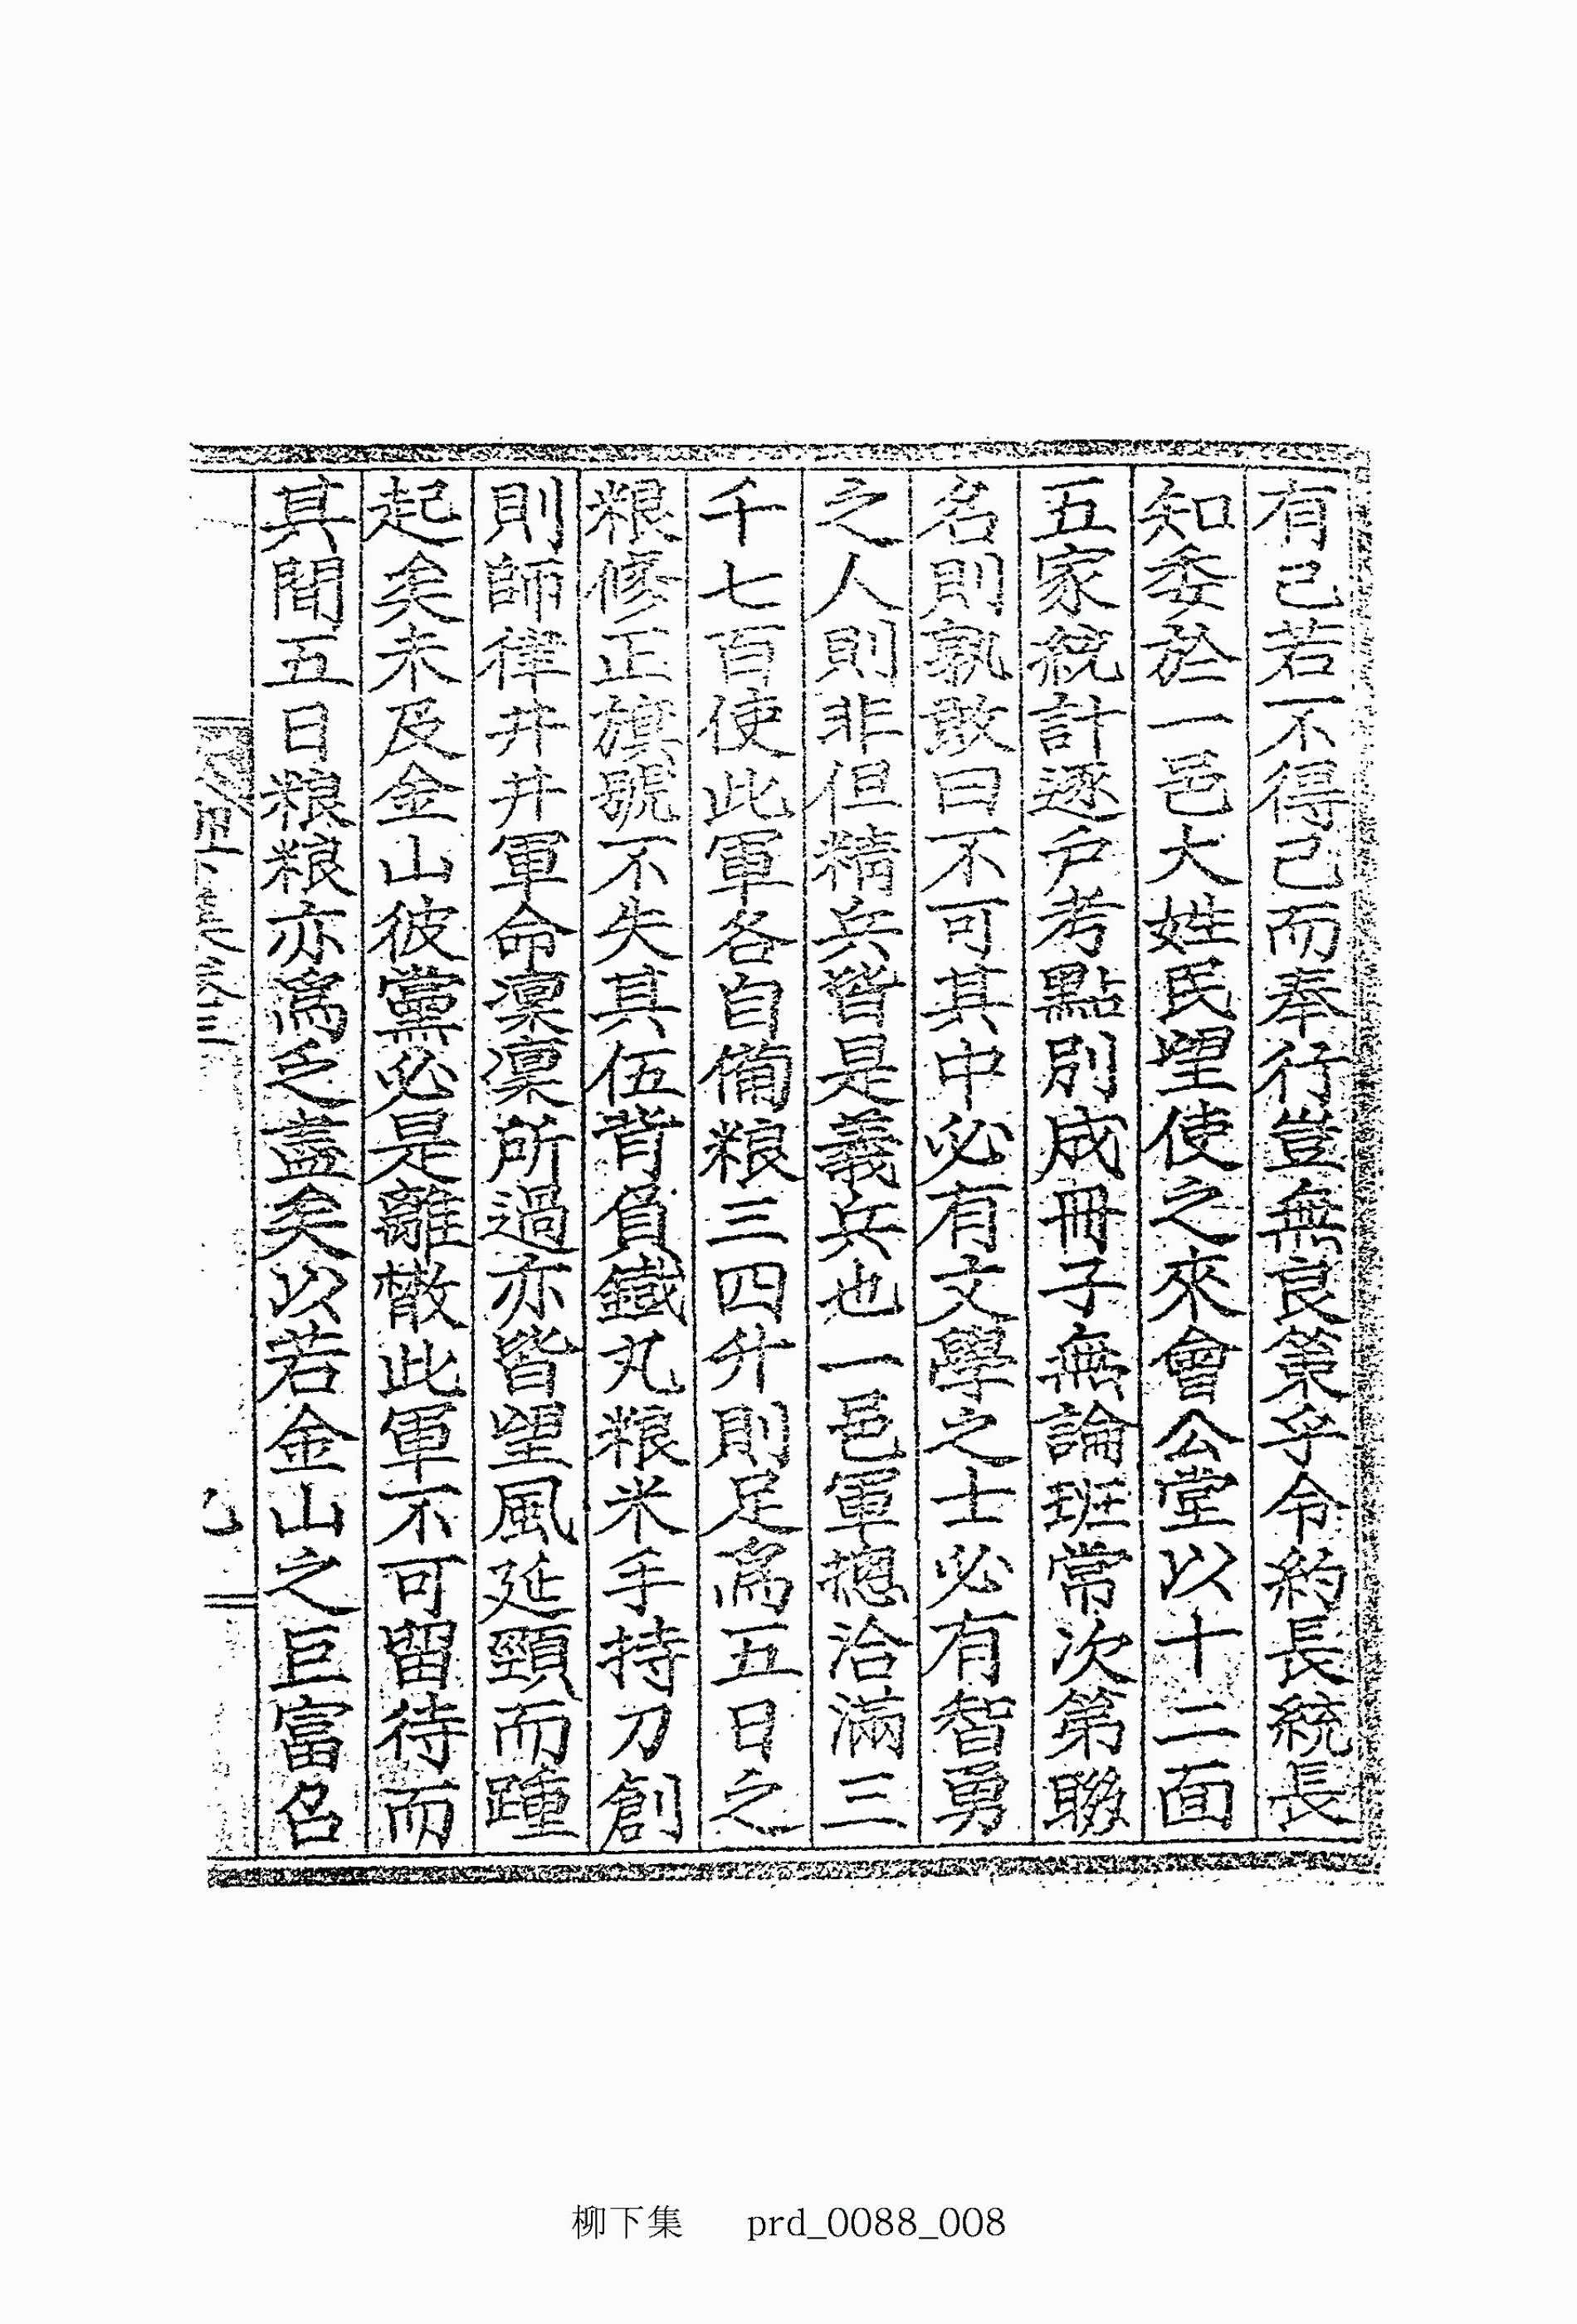 有已若不得已而奉行豈無良策乎令約長統長
知委於一邑大姓民望使之來會公堂以十二面
五家統計逐戶考點別成冊子無論班常次第聯
名則孰敢曰不可其中必有文學之士必有智勇
之人則非但精兵皆是義兵也一邑軍摠洽滿三
千七百使此軍各自備粮三四升則足爲五日之
粮修正旗號不失其伍背負鐵丸粮米手持刀創
則師律井井軍命凜凜所過亦皆望風延頸而踵
起矣未及金山彼黨必是離散此軍不可留待而
其間五日粮粮亦爲乏盡矣以若金山之巨富名
柳下集 prd_0088_008